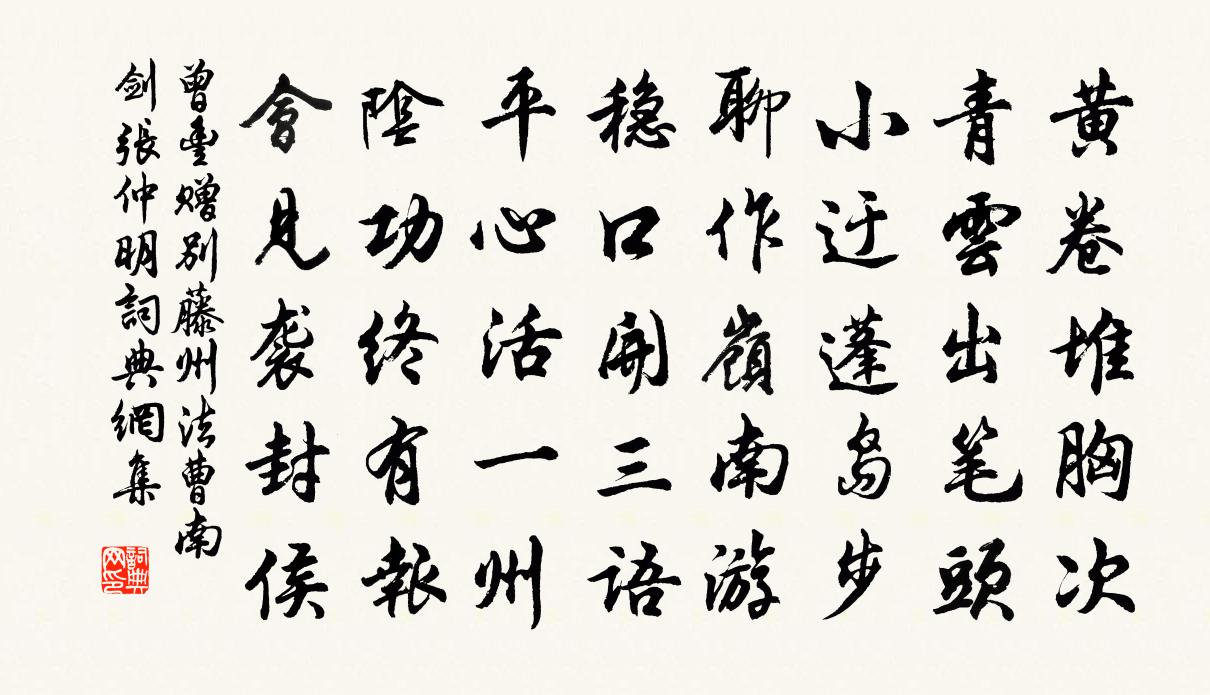 黄卷堆胸次
青雲出笔頭
小迂蓬岛步
聊作嶺南游
穏口開三语
平心活一州
陰功终有報
會見袭封侯
曾豊赠别藤州法曹南
剑張仲明詞典網集
詞典
网印